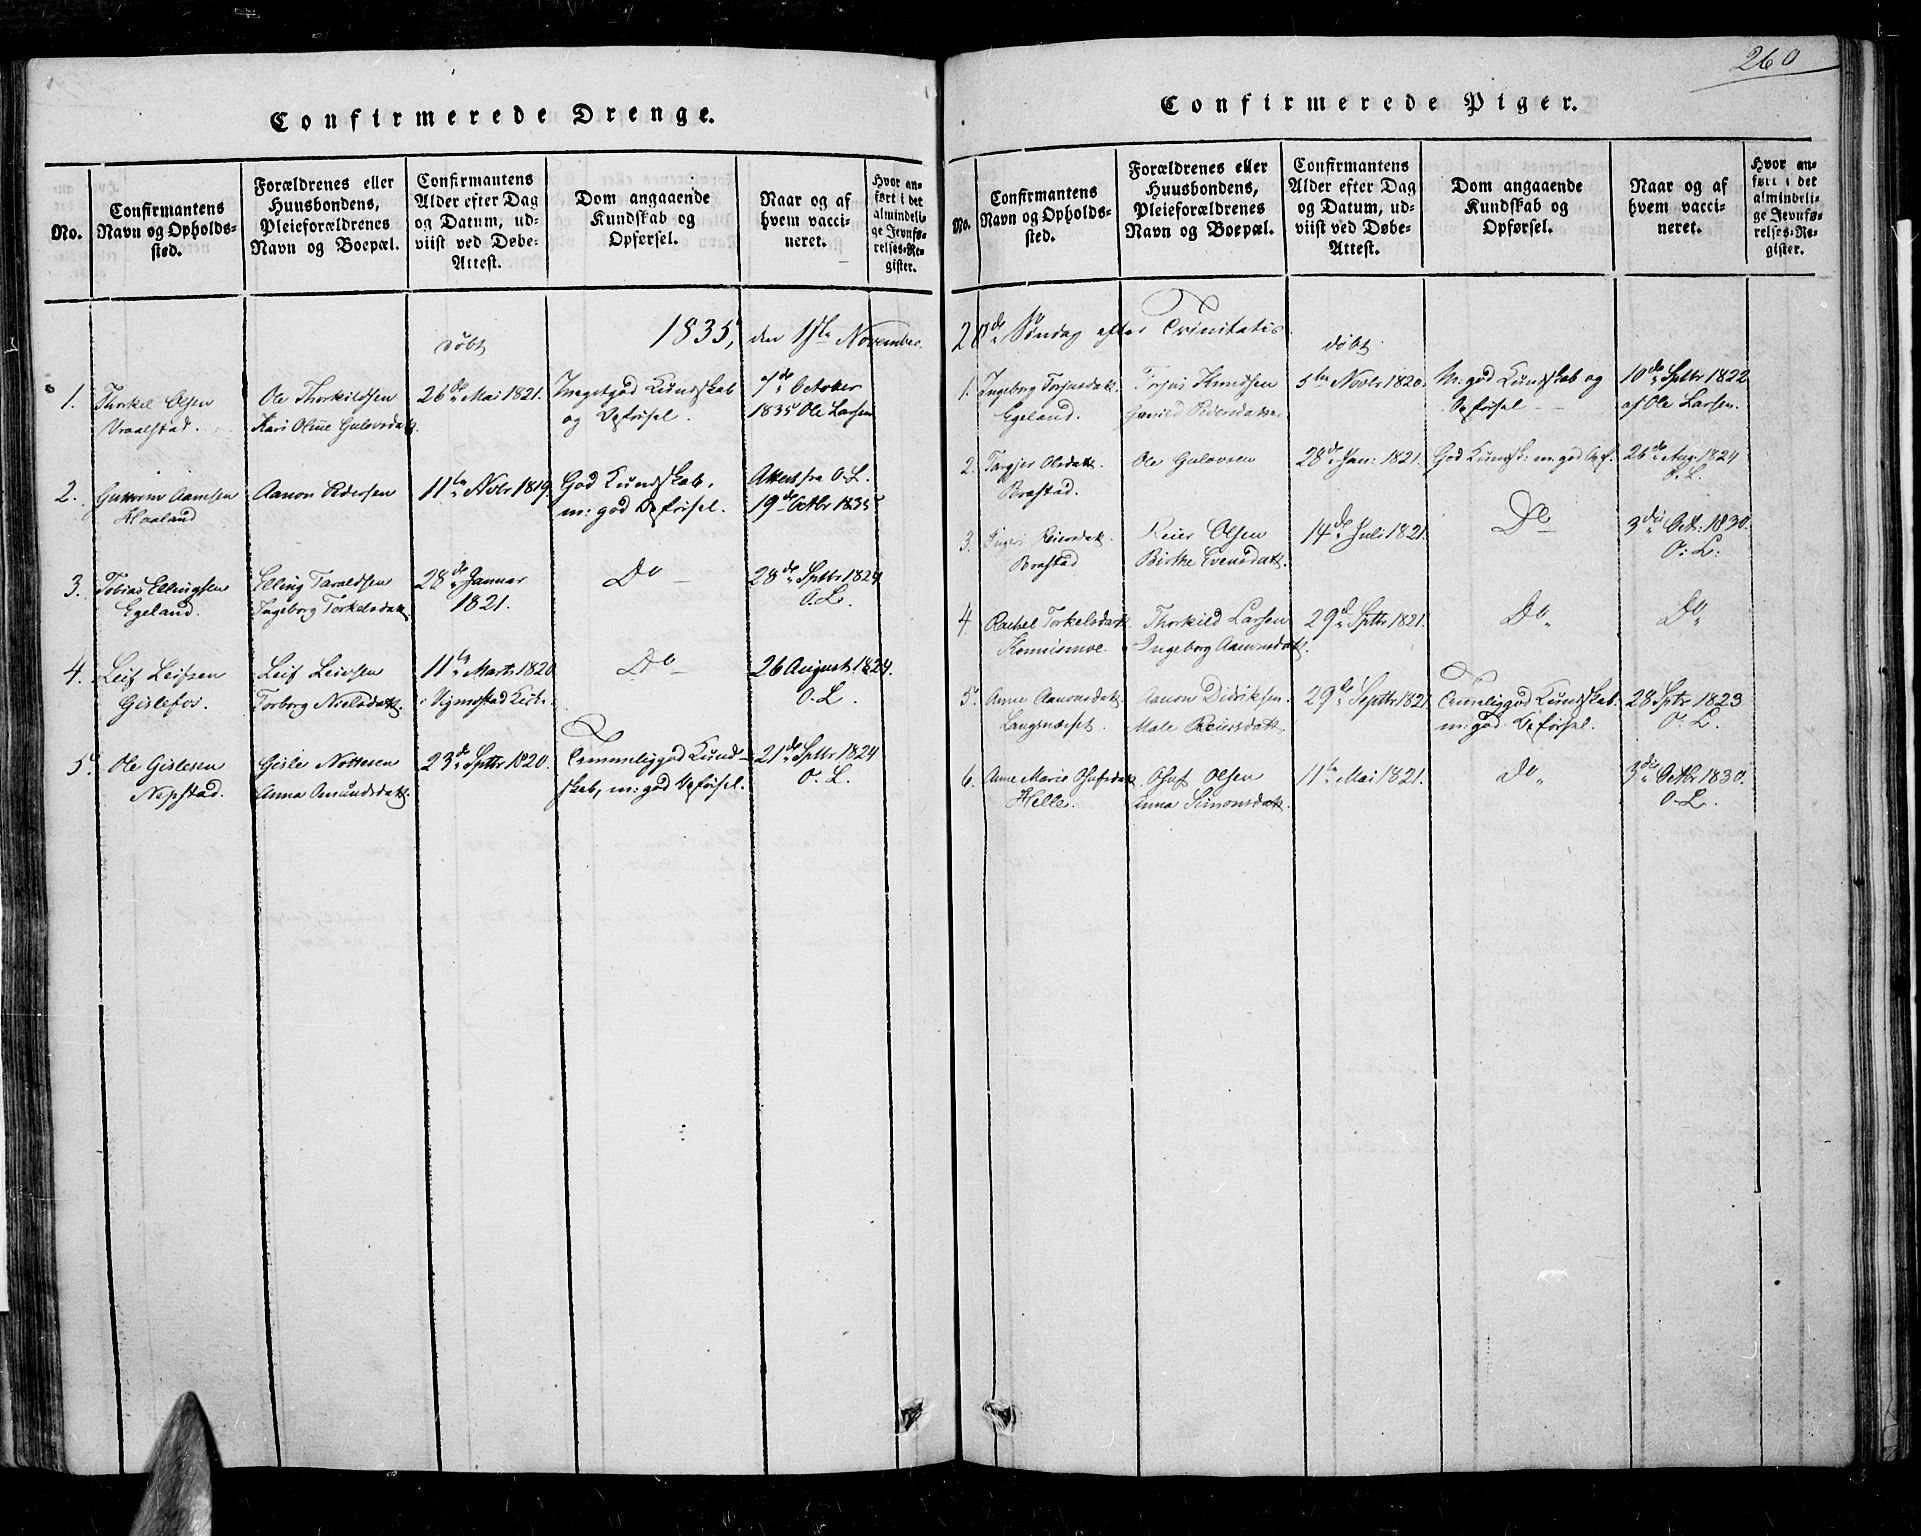 260
Confirmerede Drenge.
No.
Confirmantens
Navn og Opholds-
sted.
Forældrenes eller
Huusbondens,
Pleieforældrenes
Navn og Boepæl.
Confirmantens
Alder efter Dag
og Datum, ud-
viist ved Døbe-
Attest.
Dom angaaende
Kundskab og
Opførsel.
Naar og af
hvem vacci-
neret.
Hvor an-
ført i det
almindeli-
ge Jevnfø-
relses-Re-
gister.
1835, den 1ste November
døbt
1. Thorkel Olsen
Vraalstad.
Ole Thorkildsen
Kari Oline Gulovsdatt.
26de Mai 1821.
Megetgod Kundskab
og Opførsel.
7de October
1835 Ole Larsen
2. Guttorm Aanensen
Haaland
Aanon Pedersen
11te Novbr 1819.
God Kundskab,
m: god Opførsel.
Attest fra O.L.
19de Octbr 1835
3. Tobias Ellingsen
Egeland.
Elling Taraldsen
Ingeborg Torkelsdatt.
28de Januar
1821.
Do
28de Sptbr 1824
O.L.
4. Leif Leifsen
Gislefos.
Leif Leifsen
Torborg Nielsdatt.
11te Marts 1820
i Vigmostad
Do
26 August 1824.
O.L.
5. Ole Gislesen
Nepstad.
Gisle Nottesen
Anna Amundsdatt.
23de Sptbr 1820.
Temmeliggod Kund-
skab, m: god Opførsel.
21de Sptbr 1824
O.L.
Confirmerede Piger.
No.
Confirmantens
Navn og Opholds-
sted.
Forældrenes eller
Huusbondens,
Pleieforældrenes
Navn og Boepæl.
Confirmantens
Alder efter Dag
og Datum, ud-
viist ved Døbe-
Attest.
Dom angaaende
Kundskab og
Opførsel.
Naar og af
hvem vacci-
neret.
Hvor an-
ført i det
almindeli-
ge Jevnfø-
relses-Re-
gister.
20de Søndag efter Trinitatis
døbt
1. Ingeborg Torjusdatt.
Egeland.
Torjus Knudsen
Gunild Pedersdatter
5te Novbr 1820.
M: god Kundskab og
Opførsel
10de Sptbr 1822
af Ole Larsen.
2. Targjer Olsdatt.
Brastad.
Ole Gulovsen
28de Jan: 1821.
God Kundsk: m: god Opf.
26de Aug. 1824
O.L.
3. Reiersdatt.
Brastad
Reier Olsen
Birthe Evensdatt.
14de Juli 1821
Do
3die Octb. 1830.
O:L:
4. Rachel Torkelsdatt.
Konnismoe.
Thorkild Larsen
Ingeborg Aanonsdatt.
29de Sptbr 1821.
Do
Do
5. Anne Aanonsdatt.
Langenæset.
Aanon Didriksen.
Male Reiersdatt.
29de Septbr 1821
Temmeliggod Kundskab
m: god Opførsel.
28 Sptr 1823
O.L.
6. Anne Marie Olufsdatt.
Helle.
Oluf Olsen
Anna Simonsdatt.
11te Mai 1821.
Do
3die Octbr 1830.
O.L.